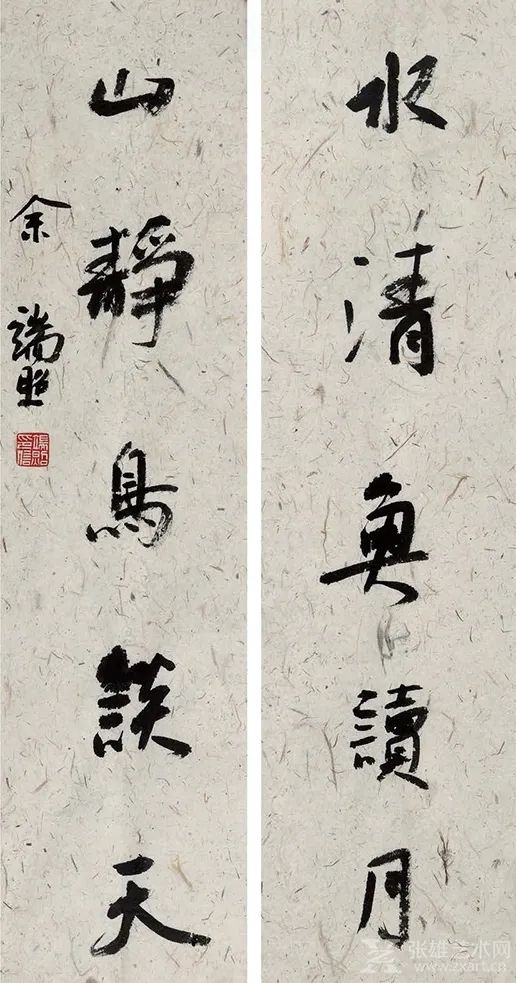 水清魚讀月
山靜鳥談天
余端照
张雄艺术网
www.zxart.cn